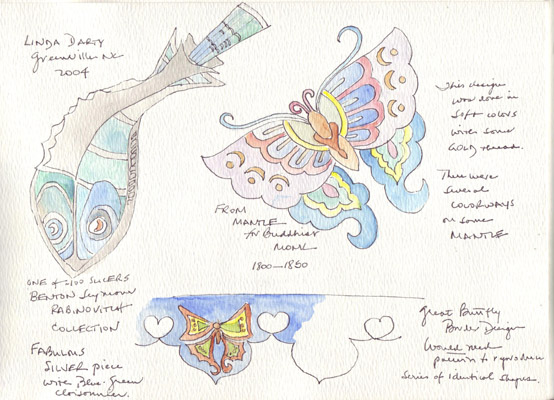 LINDA DARTY
Greenville NC
2004
This design
was done in
soft colors
with some
GOLD thread.
There were
several
COLORWAYS
on same
MANTLE
FROM
MANTLE
for Buddhist
MONK
1800-1850
ONE of -100 SLICERS
BENTON Seymour
RABINOVITCH
COLLECTION
FABULOUS
SILVER piece
with Blue-Green
cloisonné.
Great Butterfly
Border Design
Would need
pattern to reproduce
series of identical shapes.